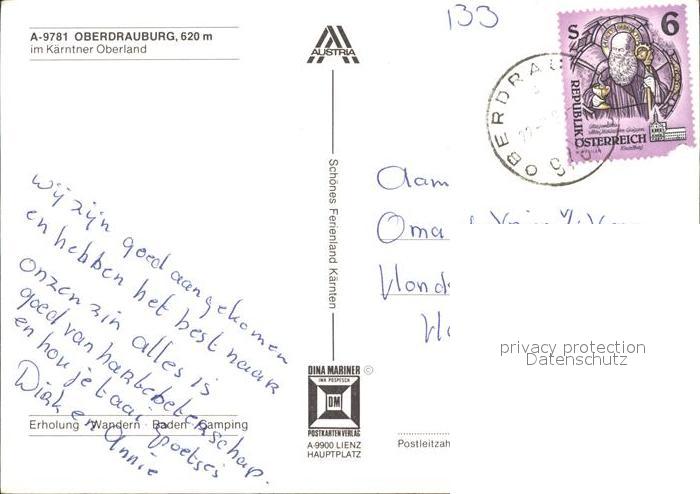 A-9781 OBERDRAUBURG, 620 m
im Kärntner Oberland
AUSTRIA
133
S 6
REPUBLIK
ÖSTERREICH
OBERDRAU
Schönes Ferienland Kärnten
wij zijn goed aangekomen
en hebben het best naar
onzen zin alles is
goed van harte beterschap.
en hou je taai groetjes
Dirk en Annie
Aan
Oma
privacy protection
Datenschutz
DINA MARINER ©
INH POSPESCH
DM
POSTKARTENVERLAG
A-9900 LIENZ
HAUPTPLATZ
Erholung Wandern Baden Camping
Postleitzah